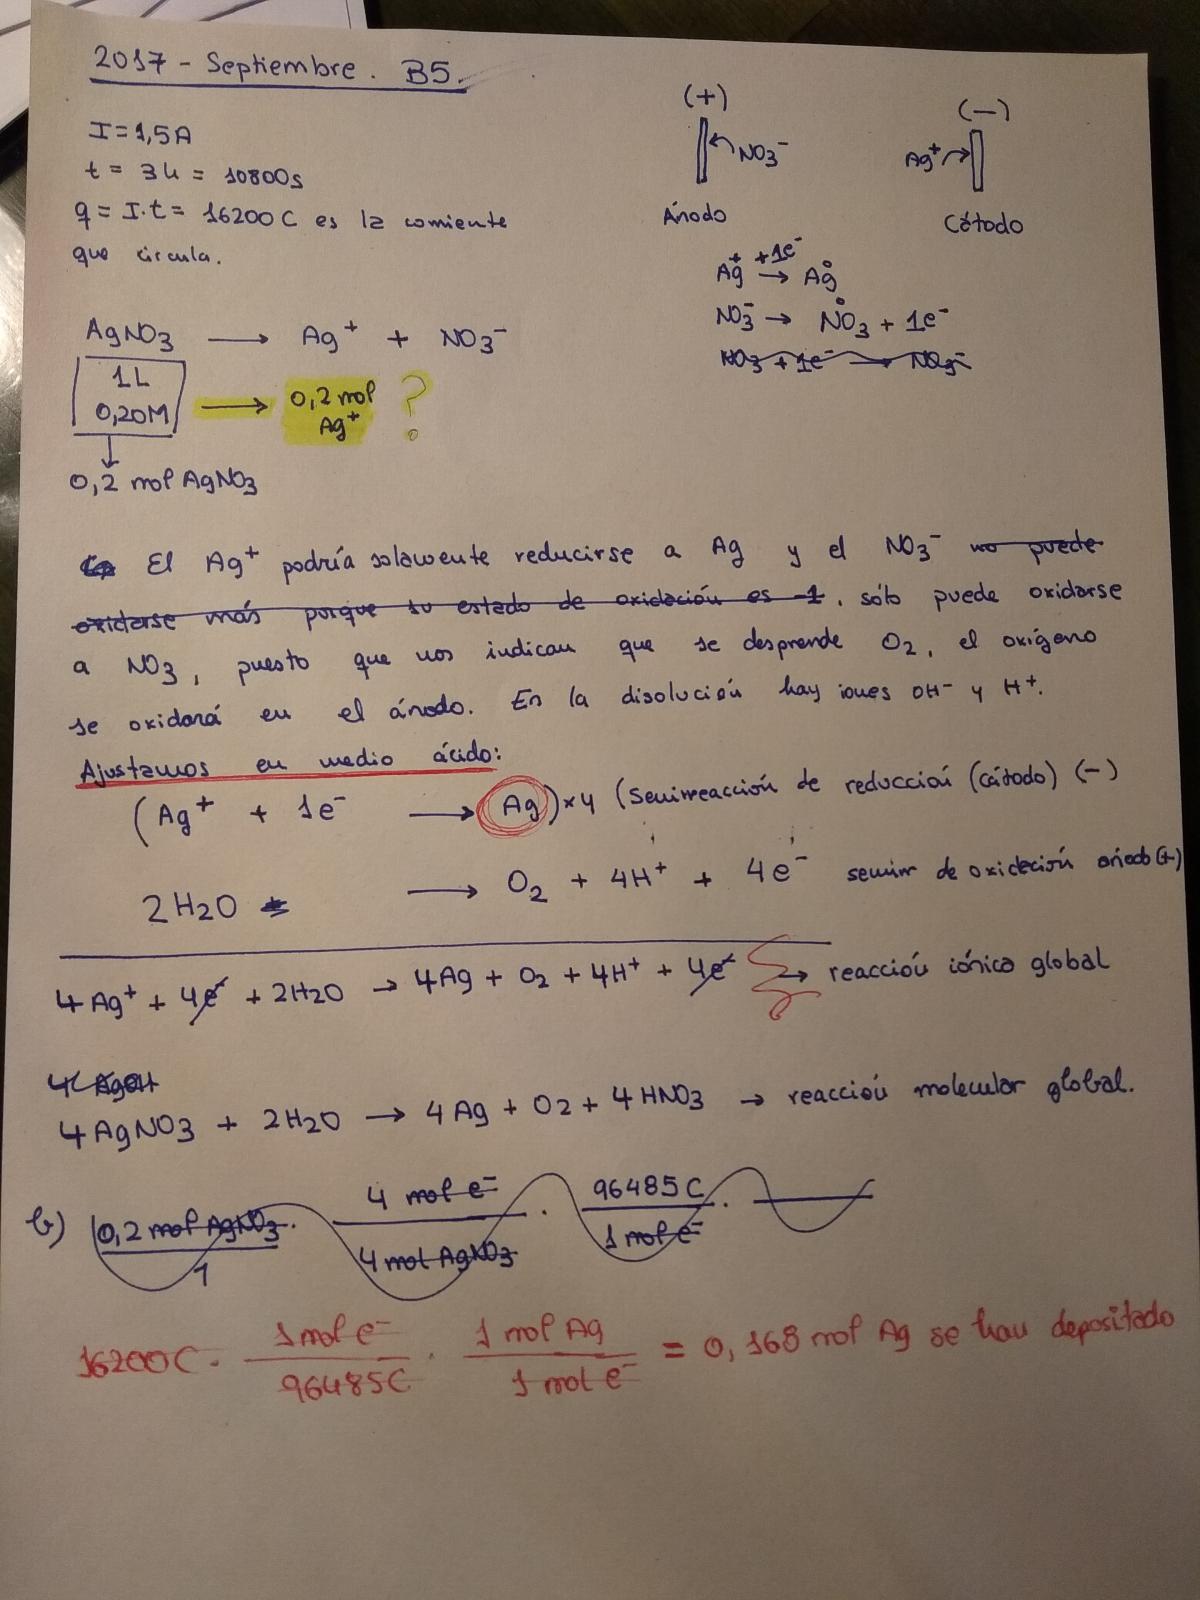 2017 - Septiembre. B5.
I = 1,5A
t = 3h = 10800s
q = I·t = 16200C es la corriente
que circula.
(+) (-)
NO3⁻ Ag⁺
Ánodo Cátodo
Ag⁺ +1e⁻ → Ag⁰
NO3⁻ → NO3⁰ + 1e⁻
NO3 + 1e⁻ → NO3⁻
AgNO3 → Ag⁺ + NO3⁻
1L
0,20M → 0,2 mol Ag⁺ ?
0,2 mol AgNO3
El Ag⁺ podría solamente reducirse a Ag y el NO3⁻ no puede
oxidarse más porque su estado de oxidación es -1, sólo puede oxidarse
a NO3, puesto que nos indican que se desprende O2, el oxígeno
se oxidará en el ánodo. En la disolución hay iones OH⁻ y H⁺.
Ajustamos en medio ácido:
(Ag⁺ + 1e⁻ → Ag) x4 (Semirreacción de reducción (cátodo) (-)
2H2O → O2 + 4H⁺ + 4e⁻ semirr de oxidación ánodo (+)
4Ag⁺ + 4e⁻ + 2H2O → 4Ag + O2 + 4H⁺ + 4e⁻ → reacción iónica global
4 AgOH
4AgNO3 + 2H2O → 4Ag + O2 + 4HNO3 → reacción molecular global.
b) 0,2 mol AgNO3/1 · 4 mol e⁻/4 mol AgNO3 · 96485C/1 mol e⁻ ·
16200C · 1 mol e⁻/96485C · 1 mol Ag/1 mol e⁻ = 0,168 mol Ag se han depositado